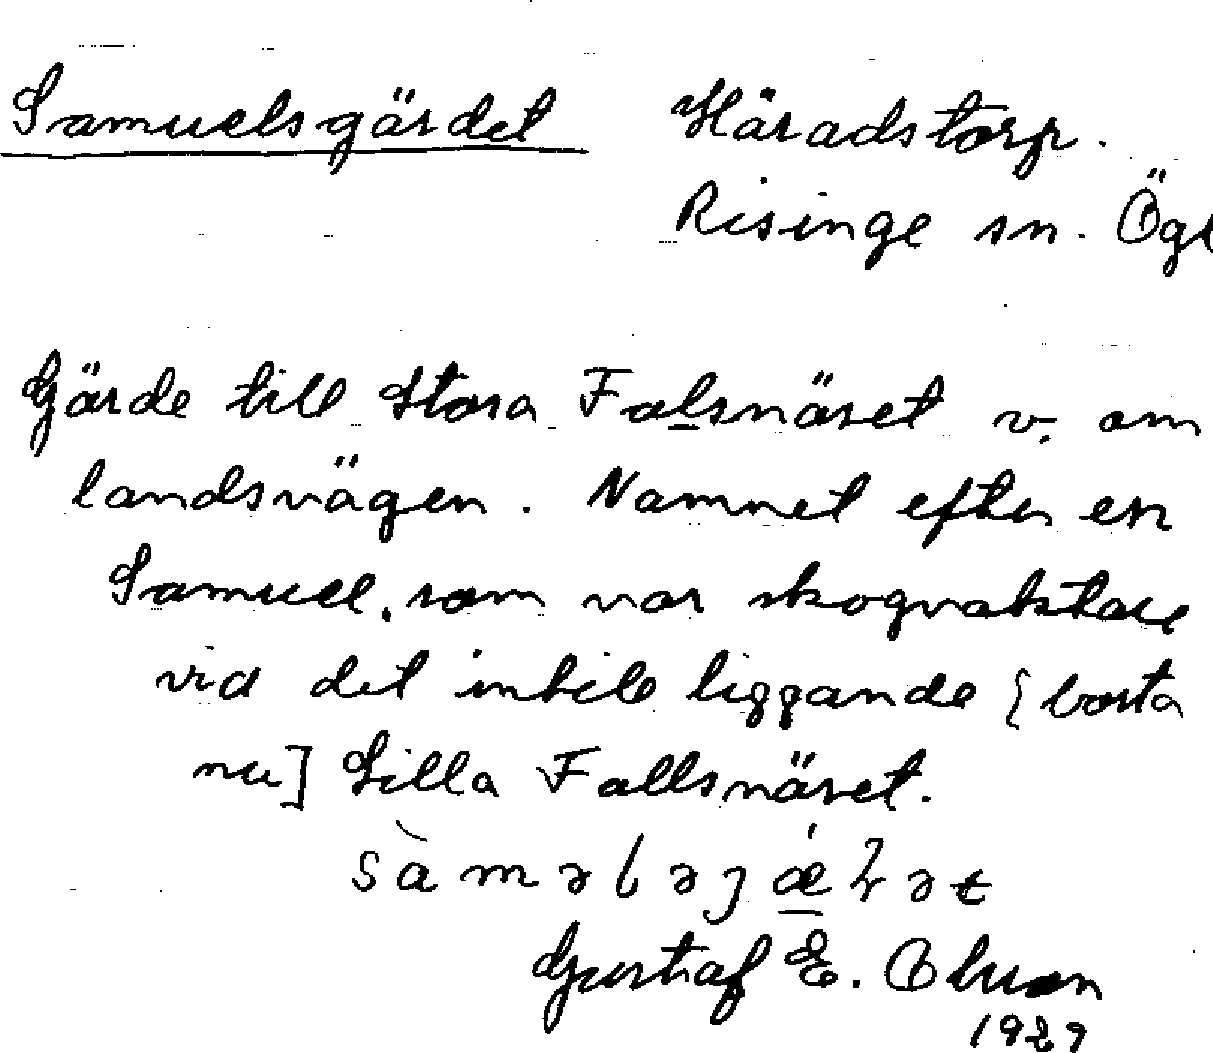 Samuelsgärdet Häradstorp.
Risinge sn. Ögl
Gärde till Stora Falsnäset v. om
landsvägen. Namnet efter en
Samuel, som var skogvaktare
vid det intill liggande [borta
nu] Lilla Fallsnäset.
Gustaf E.
1929